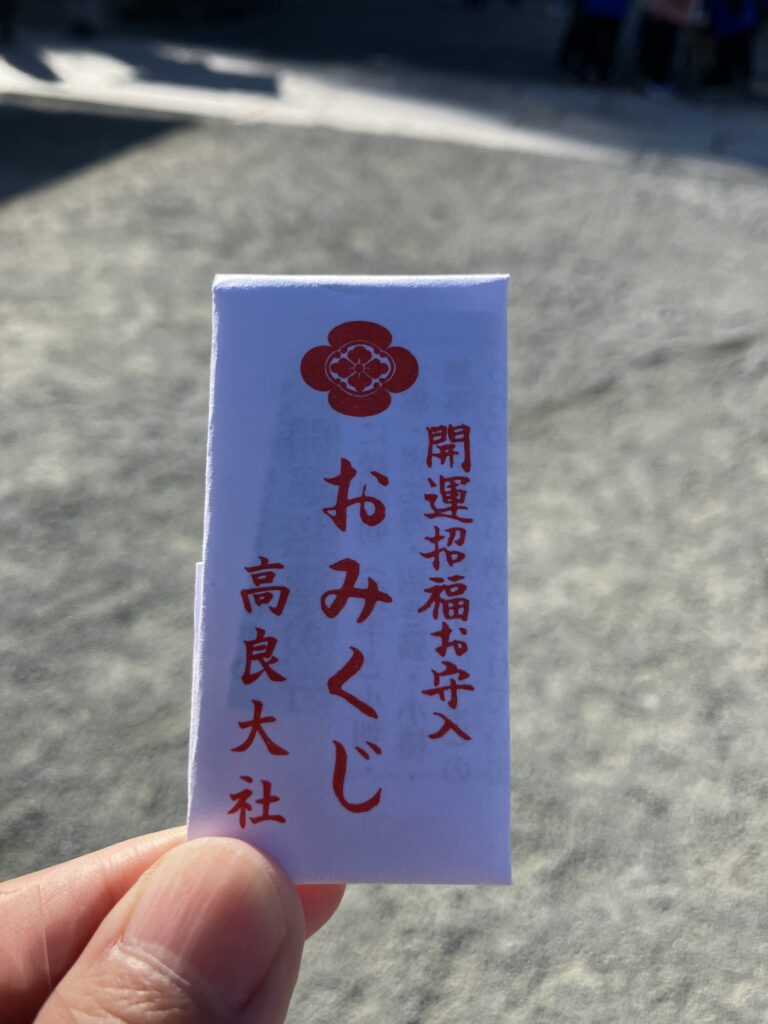 開運招福お守入
おみくじ
高良大社